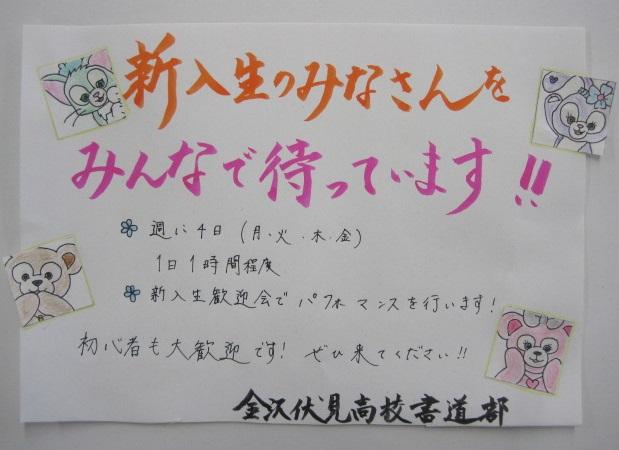 新入生のみなさんを
みんなで待っています!!
週に4日(月・火・木・金)
1日1時間程度
新入生歓迎会でパフォマンスを行います!
初心者も大歓迎です!ぜひ来てください!!
金沢伏見高校書道部